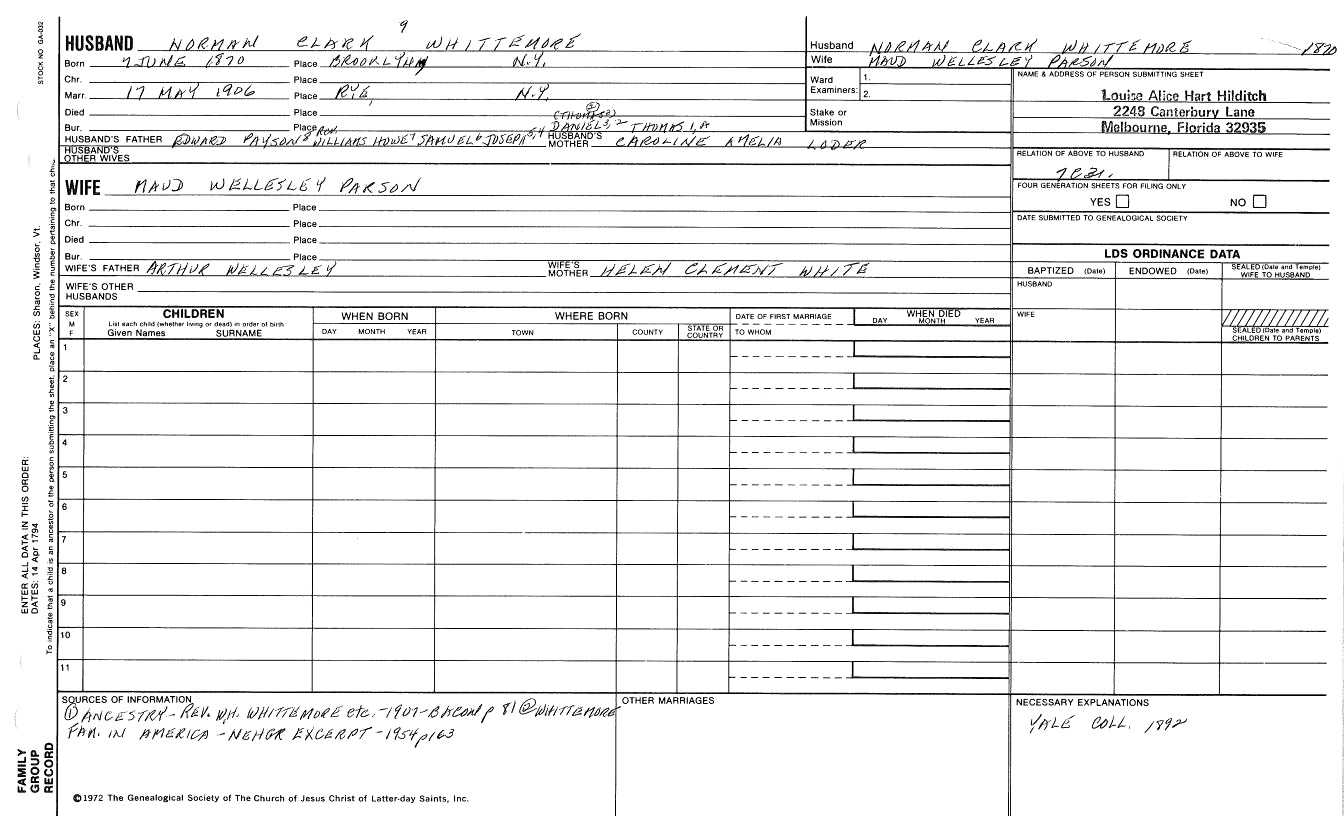 9
HUSBAND NORMAN CLARK WHITTEMORE
Born 7 JUNE 1870 Place BROOKLYN N.Y.
Chr. Place
Marr. 17 MAY 1906 Place RYE, N.Y.
Died Place
Bur. Place
HUSBAND'S FATHER EDWARD PAYSON 8 REV. WILLIAMS HOWE 7 SAMUEL 6 JOSEPH 5, 4 (THOMAS 2) DANIEL 3, 2 THOMAS 1, A
HUSBAND'S MOTHER CAROLINE AMELIA LODER
HUSBAND'S OTHER WIVES
WIFE MAUD WELLESLEY PARSON
Born Place
Chr. Place
Died Place
Bur. Place
WIFE'S FATHER ARTHUR WELLESLEY WIFE'S MOTHER HELEN CLEMENT WHITE
WIFE'S OTHER HUSBANDS
Husband NORMAN CLARK WHITTEMORE 1870
Wife MAUD WELLESLEY PARSON
Ward Examiners: 1.
2.
Stake or Mission
NAME & ADDRESS OF PERSON SUBMITTING SHEET
Louise Alice Hart Hilditch
2248 Canterbury Lane
Melbourne, Florida 32935
RELATION OF ABOVE TO HUSBAND RELATION OF ABOVE TO WIFE
FOUR GENERATION SHEETS FOR FILING ONLY
YES NO
DATE SUBMITTED TO GENEALOGICAL SOCIETY
LDS ORDINANCE DATA
BAPTIZED (Date) ENDOWED (Date) SEALED (Date and Temple) WIFE TO HUSBAND
HUSBAND
WIFE
SEALED (Date and Temple) CHILDREN TO PARENTS
SEX M F
CHILDREN
List each child (whether living or dead) in order of birth
Given Names SURNAME
WHEN BORN
DAY MONTH YEAR
WHERE BORN
TOWN COUNTY STATE OR COUNTRY
DATE OF FIRST MARRIAGE
TO WHOM
WHEN DIED
DAY MONTH YEAR
1
2
3
4
5
6
7
8
9
10
11
SOURCES OF INFORMATION
① ANCESTRY - REV. W.H. WHITTEMORE etc. - 1907 - p 81 ② WHITTEMORE
FAM. IN AMERICA - NEHGR EXCERPT - 1954 p163
OTHER MARRIAGES
NECESSARY EXPLANATIONS
YALE COLL. 1892
©1972 The Genealogical Society of The Church of Jesus Christ of Latter-day Saints, Inc.
STOCK NO. GA-032
PLACES: Sharon, Windsor, Vt.
ENTER ALL DATA IN THIS ORDER:
DATES: 14 Apr 1794
To indicate that a child is an ancestor of the person submitting the sheet, place an "X" behind the number pertaining to that
FAMILY
GROUP
RECORD